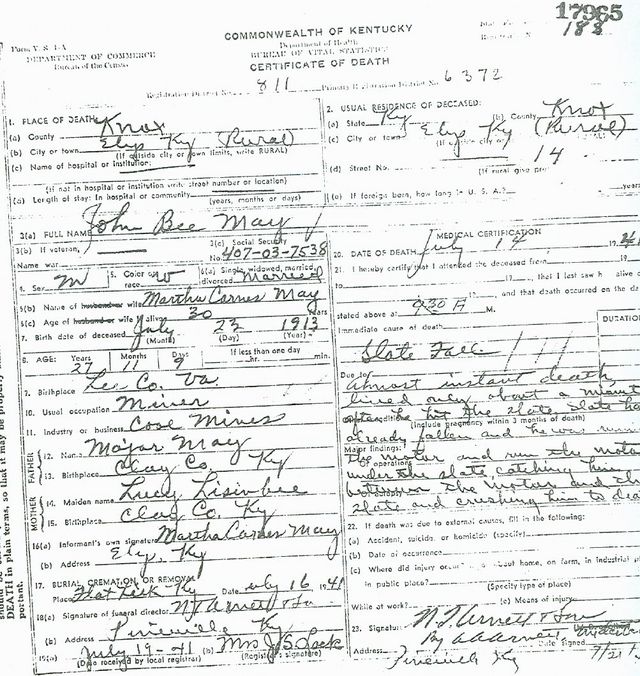 17965
188
Form V. S. 1-A
DEPARTMENT OF COMMERCE
Bureau of the Census
COMMONWEALTH OF KENTUCKY
Department of Health
BUREAU OF VITAL STATISTICS
CERTIFICATE OF DEATH
Registration District No. 811 Primary Registration District No. 6372
1. PLACE OF DEATH:
(a) County Knox
(b) City or town Elys Ky (Rural)
(If outside city or town limits, write RURAL)
(c) Name of hospital or institution:
(If not in hospital or institution write street number or location)
(d) Length of stay: In hospital or community
(years, months or days)
2. USUAL RESIDENCE OF DECEASED:
(a) State Ky (b) County Knox
(c) City or town Elys Ky (Rural)
(If outside city or
(d) Street No. 14
(If rural give
(e) If foreign born, how long in U. S. A.? years
3(a) FULL NAME John Bee May
3(b) If veteran,
Name war
3(c) Social Security
No. 407-03-7538
4. Sex M
5. Color or race W
6(a) Single, widowed, married, divorced Married
6(b) Name of husband or wife Martha Carnes May
6(c) Age of husband or wife if alive 30 Years
7. Birth date of deceased July 23 1913
(Month) (Day) (Year)
8. AGE: Years Months Days If less than one day
27 11 9 hr. min.
9. Birthplace Lee Co. Va.
10. Usual occupation Miner
11. Industry or business Coal Mines
FATHER
12. Name Major May
13. Birthplace Clay Co. Ky
MOTHER
14. Maiden name Lucy
15. Birthplace Clay Co. Ky
16(a) Informant's own signature Martha Carnes May
(b) Address Ely, Ky
17. BURIAL, CREMATION, OR REMOVAL
Place Flat Lick Ky Date July 16 1941
18(a) Signature of funeral director
(b) Address Pineville Ky
19(a) July 19-41 (b) Mrs J.S. Lock
(Date received by local registrar) (Registrar's signature)
MEDICAL CERTIFICATION
20. DATE OF DEATH July 14, 19
21. I hereby certify that I attended the deceased from 19
to 19 , that I last saw h alive o
and that death occurred on the da
stated above at 9:30 A M.
Immediate cause of death
DURATIO
Slate Fall
Due to
almost instant death,
lived only about a minute
after he hit the slate. Slate ha
Other conditions (Include pregnancy within 3 months of death)
already fallen and he was
Major findings:
the motor and run the motor
Of operations
under the slate catching him
between the motor and the
slate and crushing him to dea
22. If death was due to external causes, fill in the following:
(a) Accident, suicide, or homicide (specify)
(b) Date of occurrence
(c) Where did injury occur? about home, on farm, in industrial pl
in public place?
(Specify type of place)
While at work? (e) Means of injury
23. Signature
Address Pineville Ky Date signed 7/21/
DEATH in plain terms, so that it may be properly
portant.